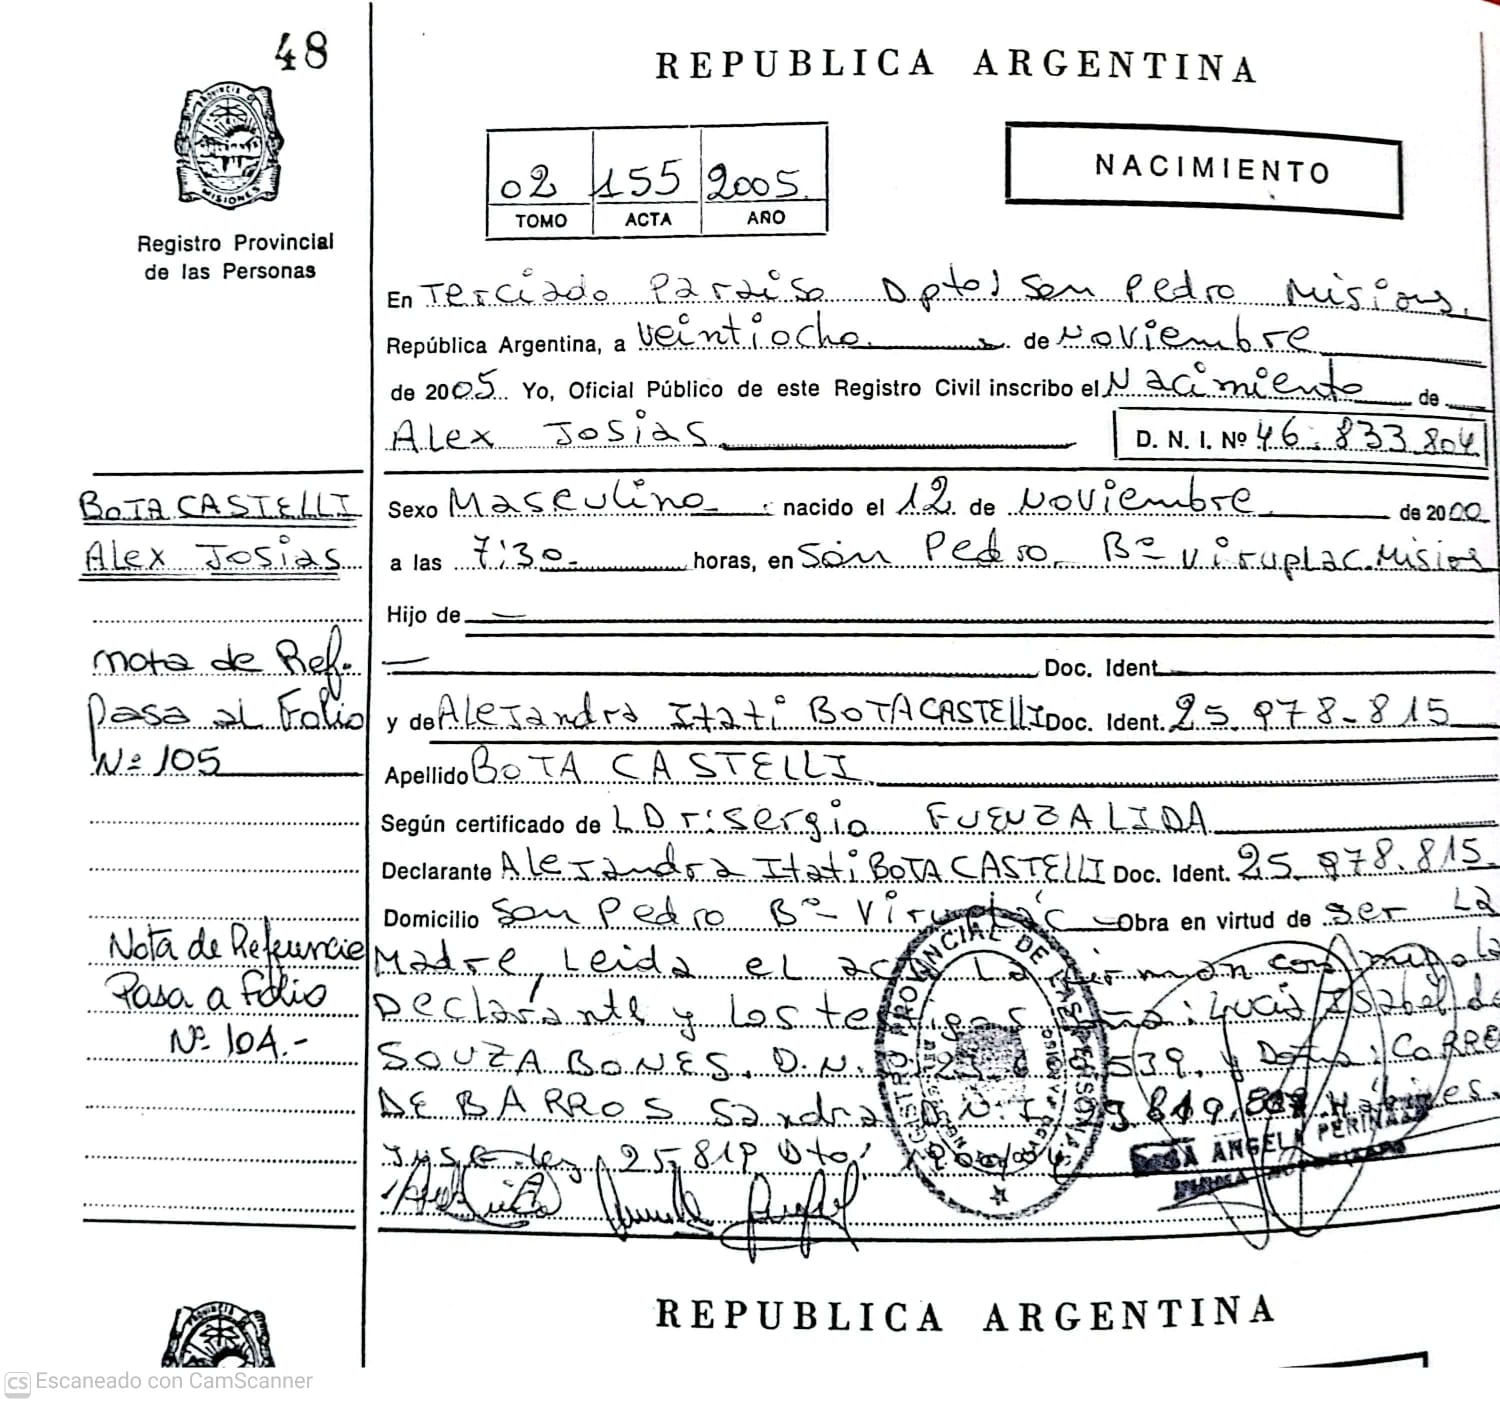 48
REPUBLICA ARGENTINA
PROVINCIA
MISIONES
Registro Provincial
de las Personas
02 155 2005
TOMO ACTA AÑO
NACIMIENTO
En Terciado Paraiso Dpto! San Pedro Misions,
República Argentina, a Veintiocho de Noviembre
de 2005 Yo, Oficial Público de este Registro Civil inscribo el Nacimiento de
Alex Josias D. N. I. Nº 46.833.804
BOTA CASTELLI
Alex Josias
Nota de Ref.
pasa al Folio
Nº 105
Sexo Masculino nacido el 12 de Noviembre de 2000
a las 7:30 horas, en San Pedro Bº Viruplac.Misios
Hijo de
Doc. Ident
y de Alejandra Itati BOTA CASTELLI Doc. Ident. 25.978-815
Apellido BOTA CASTELLI
Según certificado de L Dr: Sergio FUENZALIDA
Declarante Alejandra Itati BOTA CASTELLI Doc. Ident. 25.978.815
Domicilio San Pedro Bº Viruplac Obra en virtud de ser La
Nota de Referencia
Pasa a folio
Nº 104.-
Madre, Leida el acta La firman conmigo La
Declarante y Los testigos : Lucia Isabel de
SOUZA BONES, D.N. 539 y Doña: CARRE
DE BARROS Sandra D.N.I
25.819 Dto!
REGISTRO PROVINCIAL DE LAS PERSONAS
ANGELA PERINA
REPUBLICA ARGENTINA
PROVINCIA
CS Escaneado con CamScanner